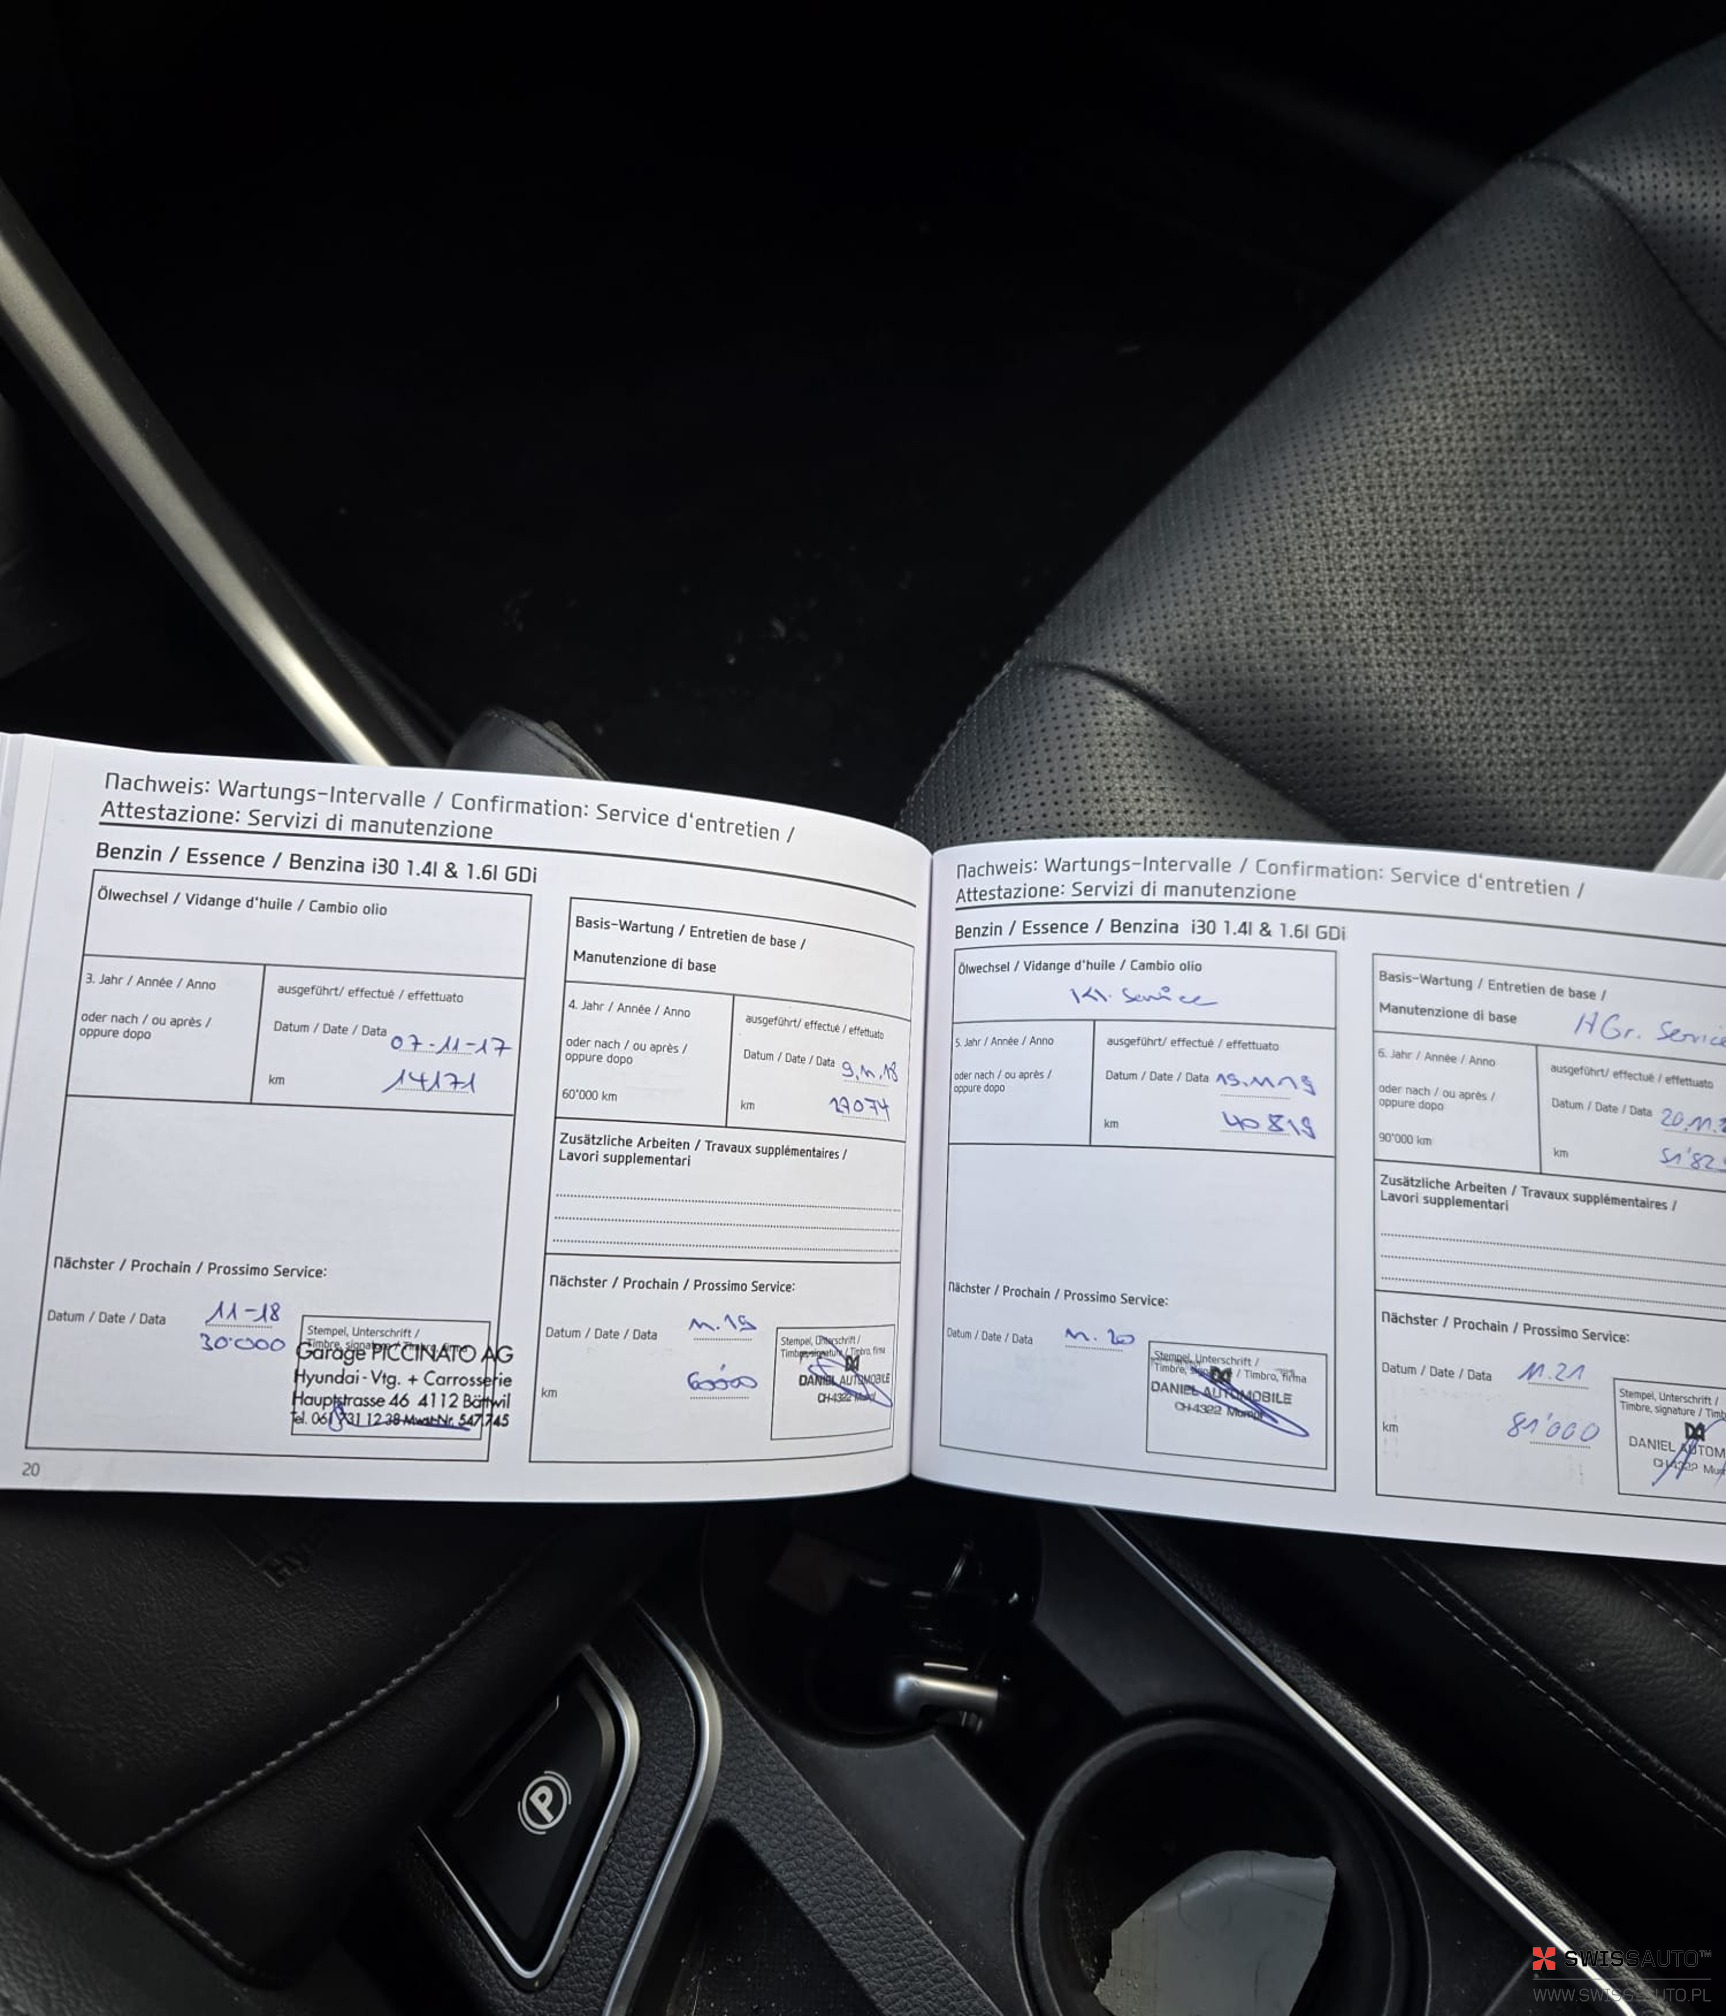 Nachweis: Wartungs-Intervalle / Confirmation: Service d'entretien /
Attestazione: Servizi di manutenzione
Benzin / Essence / Benzina i30 1.4l & 1.6l GDi
Ölwechsel / Vidange d'huile / Cambio olio
3. Jahr / Année / Anno
oder nach / ou après /
oppure dopo
ausgeführt/ effectué / effettuato
Datum / Date / Data 07-11-17
km 14171
Nächster / Prochain / Prossimo Service:
Datum / Date / Data 11-18
30'000
Stempel, Unterschrift /
Garage PICCINATO AG
Hyundai-Vtg. + Carrosserie
Hauptstrasse 46 4112 Bättwil
Tel. 061 731 12 38 Mwst-Nr. 547'745
20
Basis-Wartung / Entretien de base /
Manutenzione di base
4. Jahr / Année / Anno
oder nach / ou après /
oppure dopo
60'000 km
ausgeführt/ effectué / effettuato
Datum / Date / Data 9.11.18
km 27074
Zusätzliche Arbeiten / Travaux supplémentaires /
Lavori supplementari
Nächster / Prochain / Prossimo Service:
Datum / Date / Data 11.19
km 60000
Stempel, Unterschrift /
Timbre, signature / Timbro, firma
DANIEL AUTOMOBILE
CH-4322 Mumpf
Nachweis: Wartungs-Intervalle / Confirmation: Service d'entretien /
Attestazione: Servizi di manutenzione
Benzin / Essence / Benzina i30 1.4l & 1.6l GDi
Ölwechsel / Vidange d'huile / Cambio olio
Kl. Service
5. Jahr / Année / Anno
oder nach / ou après /
oppure dopo
ausgeführt/ effectué / effettuato
Datum / Date / Data 19.11.19
km 40819
Nächster / Prochain / Prossimo Service:
Datum / Date / Data 11.20
Stempel, Unterschrift /
Timbre, signature / Timbro, firma
DANIEL AUTOMOBILE
CH-4322 Mumpf
Basis-Wartung / Entretien de base /
Manutenzione di base Gr. Service
6. Jahr / Année / Anno
oder nach / ou après /
oppure dopo
90'000 km
ausgeführt/ effectué / effettuato
Datum / Date / Data 20.11.
km 51'82
Zusätzliche Arbeiten / Travaux supplémentaires /
Lavori supplementari
Nächster / Prochain / Prossimo Service:
Datum / Date / Data 11.21
km 81'000
Stempel, Unterschrift /
Timbre, signature / Timb
DANIEL AUTOM
CH-4322 Mum
P
SWISSAUTO™
WWW.SWISSAUTO.PL